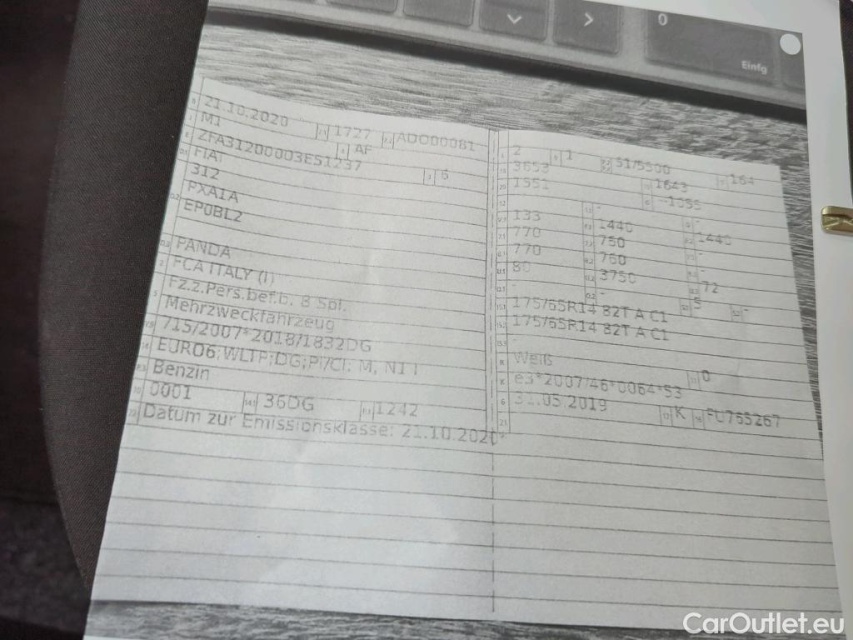 0
Einfg
21.10.2020 1727 ADO00081
M1 AF
ZFA31200003ES1237 6
FIAT
312
PXA1A
EP0BL2
PANDA
FCA ITALY (I)
Fz.z.Pers.bef.b. 8 Spl.
Mehrzweckfahrzeug
715/2007*2018/1832DG
EURO6;WLTP;DG;PI/CI; M, N1 I
Benzin
0001 36DG 1242
Datum zur Emissionsklasse: 21.10.2020*
2 1 51/5500 164
3653 1643
1551
133 1440 1440
770 760 -
770 760 -
80 3750 72
- 5 -
175/65R14 82T A C1
175/65R14 82T A C1
-
Weiß 0
e3*2007/46*0064*53
31.05.2019 K FU765267
CarOutlet.eu